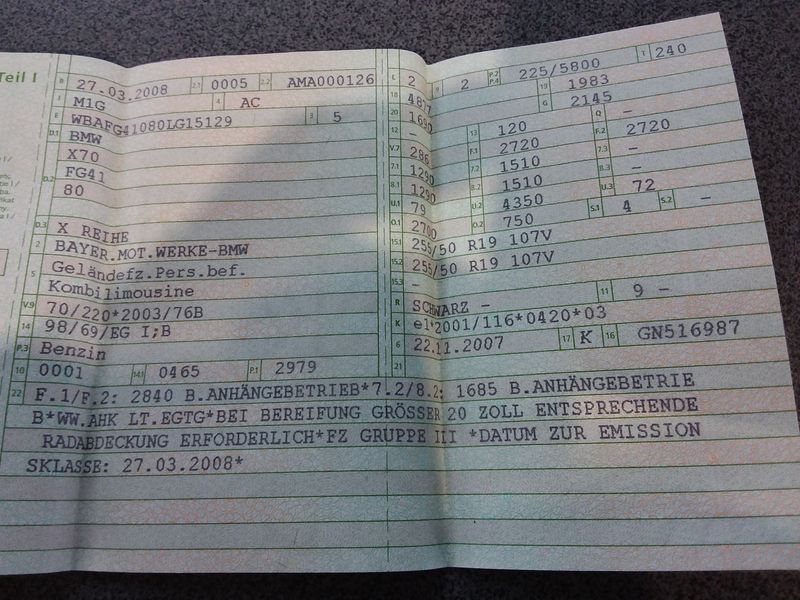 Teil I
B 27.03.2008 2.1 0005 2.2 AMA000126
J M1G 4 AC
E WBAFG41080LG15129 3 5
D.1 BMW
X70
D.2 FG41
80
D.3 X REIHE
2 BAYER.MOT.WERKE-BMW
5 Geländefz.Pers.bef.
Kombilimousine
V.9 70/220*2003/76B
14 98/69/EG I;B
P.3 Benzin
10 0001 14.1 0465 P.1 2979
L 2 9 2 P.2 P.4 225/5800 T 240
18 4877 19 1983
20 1690 G 2145
12 - 13 120 Q -
V.7 286 F.1 2720 F.2 2720
7.1 1290 7.2 1510 7.3 -
8.1 1290 8.2 1510 8.3 -
U.1 79 U.2 4350 U.3 72
O.1 2700 O.2 750 S.1 4 S.2 -
15.1 255/50 R19 107V
15.2 255/50 R19 107V
15.3 -
R SCHWARZ - 11 9 -
K e1*2001/116*0420*03
6 22.11.2007 17 K 16 GN516987
21
22 F.1/F.2: 2840 B.ANHÄNGEBETRIEB*7.2/8.2: 1685 B.ANHÄNGEBETRIE
B*WW.AHK LT.EGTG*BEI BEREIFUNG GRÖSSER 20 ZOLL ENTSPRECHENDE
RADABDECKUNG ERFORDERLICH*FZ GRUPPE III *DATUM ZUR EMISSION
SKLASSE: 27.03.2008*